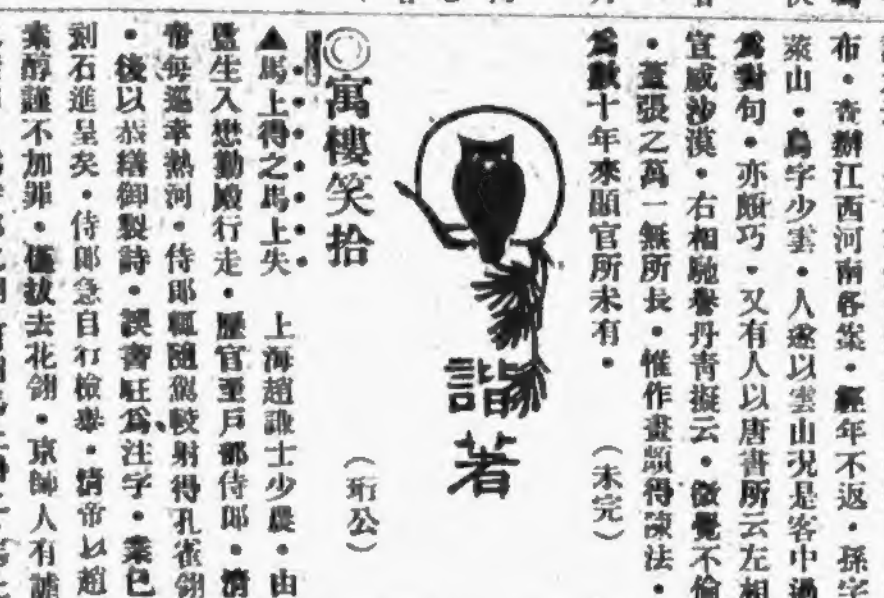 布・查辦江西河南各案・經年不返・孫字
萊山・烏字少雲・人遂以雲山況是客中過
爲對句・亦頗巧・又有人以唐書所云左相
宣威沙漠・右相馳譽丹青擬云・微覺不倫
・蓋張之萬一無所長・惟作畫頗得陳法・
爲數十年來顯官所未有・ （未完）
諧著
◎寓樓笑拾 （珩公）
▲馬上得之馬上失 上海趙謙士少農・由
監生入懋勤殿行走・歷官至戶部侍郎・清
帝每巡幸熱河・侍郎輒隨駕較射得孔雀翎
・後以恭繕御製詩・誤書駐爲注字・業已
刻石進呈矣・侍郎急自行檢舉・清帝以趙
素醇謹不加罪・僅拔去花翎・京師人有謔